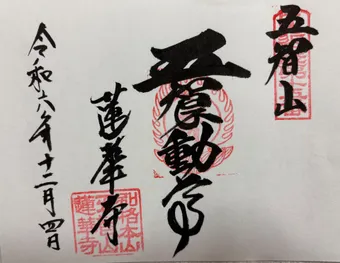 五智山
五智不動尊
蓮華寺
令和六年十二月四日
別格本山
五智山
蓮華寺